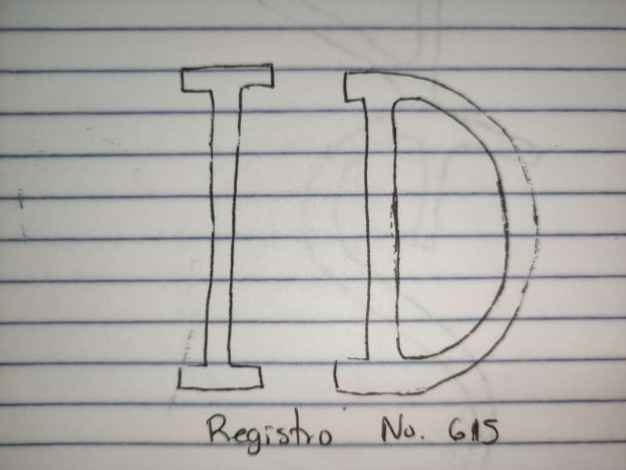 ID
Registro No. 615